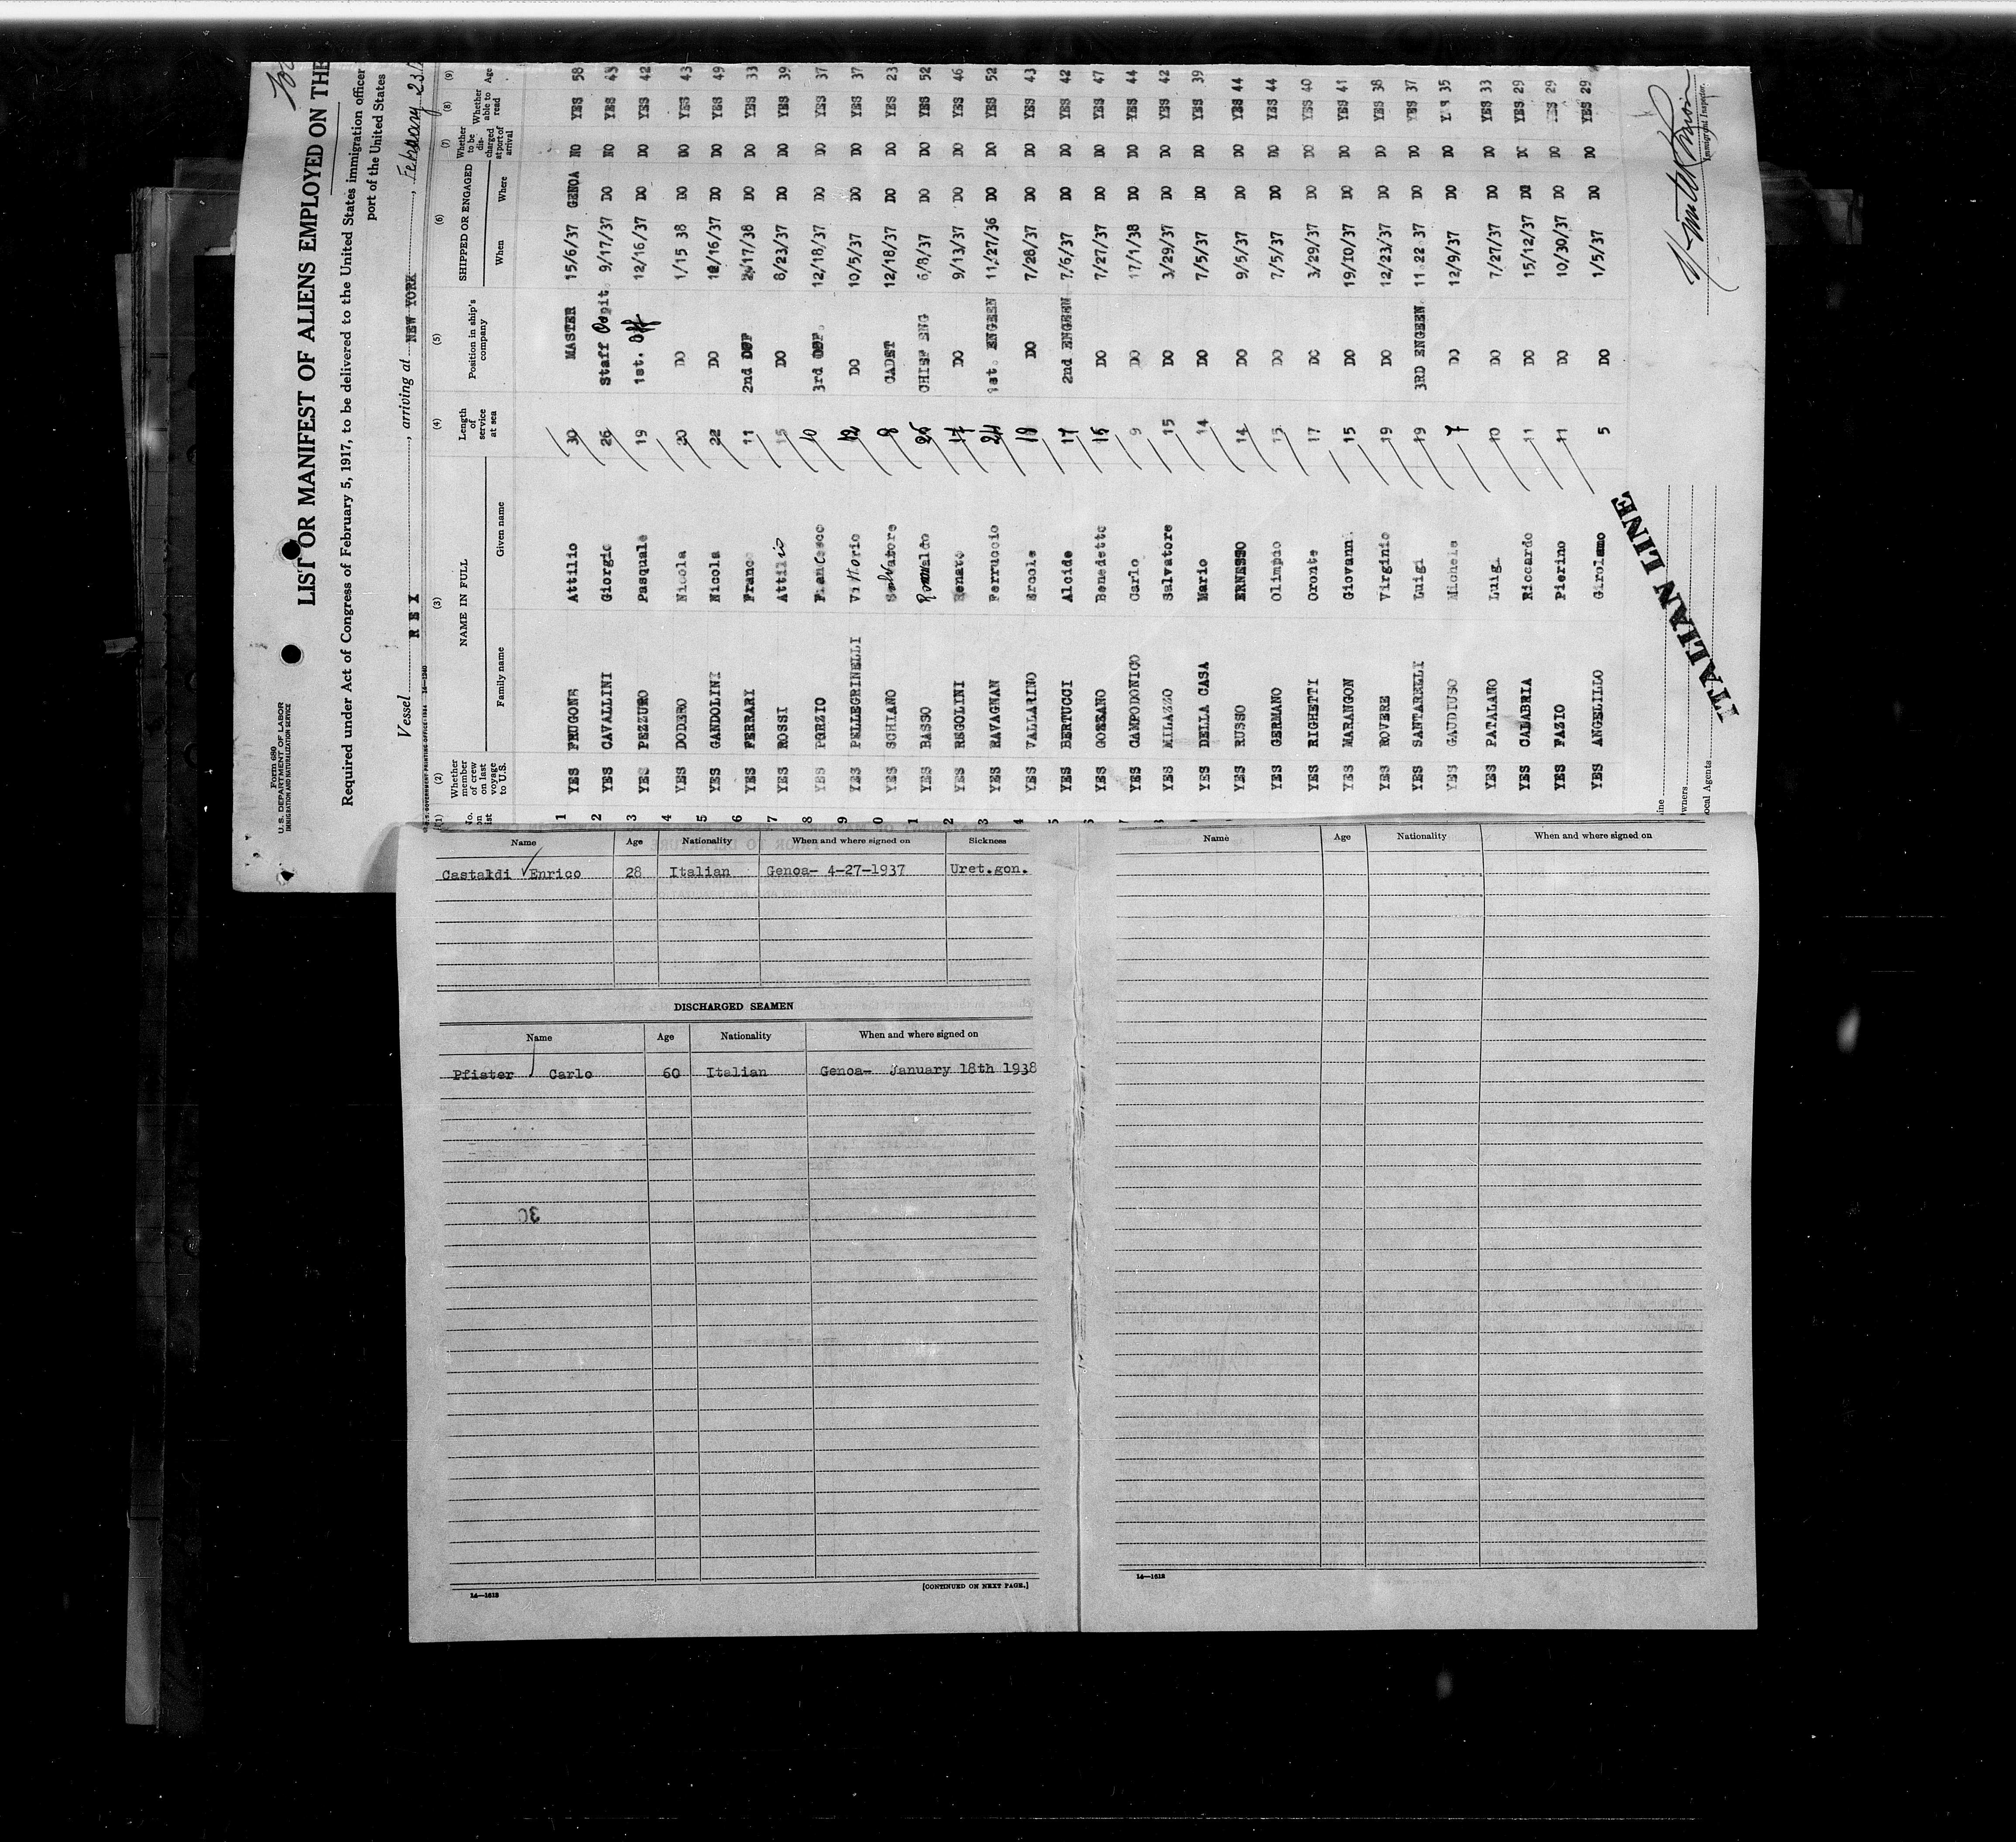 Form 680
U. S. DEPARTMENT OF LABOR
IMMIGRATION AND NATURALIZATION SERVICE
LIST OR MANIFEST OF ALIENS EMPLOYED ON THE
Required under Act of Congress of February 5, 1917, to be delivered to the United States immigration officer
port of the United States
Vessel REX, arriving at NEW YORK, February 23
(1) (2) (3) (4) (5) (6) (7) (8) (9)
Whether member of crew on last voyage to U.S. NAME IN FULL Length of service at sea Position in ship's company SHIPPED OR ENGAGED Whether to be discharged at port of arrival Whether able to read Age
Family name Given name When Where
1 YES FRUGONE Attilio 30 MASTER 15/6/37 GENOA NO YES 58
2 YES CAVALLINI Giorgio 26 Staff 9/17/37 DO NO YES 43
3 YES PEZZURO Pasquale 19 1st. Off 12/16/37 DO DO YES 42
4 YES DODERO Nicola 20 DO 1/15 38 DO DO YES 43
5 YES GANDOLINI Nicola 22 DO 12/16/37 DO DO YES 49
6 YES FERRARI Franco 11 2nd OFF 2/17/38 DO DO YES 33
7 YES ROSSI Attilio 15 DO 8/23/37 DO DO YES 39
8 YES PORZIO Francesco 10 3rd OFF. 12/18/37 DO DO YES 37
9 YES PELLEGRINELLI Vittorio 12 DO 10/5/37 DO DO YES 37
0 YES SCHIANO Salvatore 8 CADET 12/18/37 DO DO YES 23
1 YES BASSO Romualdo 26 CHIEF ENG 6/8/37 DO DO YES 52
2 YES REGOLINI Renato 17 DO 9/13/37 DO DO YES 46
3 YES RAVAGNAN Ferruccio 24 1st. ENGEEN 11/27/36 DO DO YES 52
4 YES VALLARINO Ercole 18 DO 7/28/37 DO DO YES 43
5 YES BERTUCCI Alcide 17 2nd ENGEEN 7/6/37 DO DO YES 42
6 YES GOZZANO Benedetto 15 DO 7/27/37 DO DO YES 47
YES CAMPODONICO Carlo 9 DO 17/1/38 DO DO YES 44
YES MILAZZO Salvatore 15 DO 3/29/37 DO DO YES 42
YES DELLA CASA Mario 14 DO 7/5/37 DO DO YES 39
YES RUSSO ERNESSO 14 DO 9/5/37 DO DO YES 44
YES GERMANO Olimpio 15 DO 7/5/37 DO DO YES 44
YES RIGHETTI Oronte 17 DO 3/29/37 DO DO YES 40
YES MARANGON Giovann. 15 DO 19/10/37 DO DO YES 41
YES ROVERE Virginio 19 DO 12/23/37 DO DO YES 38
YES SANTARELLI Luigi 19 3RD ENGEEN 11.22.37 DO DO YES 37
YES GAUDIUSO Michele 7 DO 12/9/37 DO DO YES 35
YES PATALANO Luigi 10 DO 7/27/37 DO DO YES 33
YES CALABRIA Riccardo 11 DO 15/12/37 DO DO YES 29
YES FAZIO Pierino 11 DO 10/30/37 DO DO YES 29
YES ANGELILLO Girolamo 5 DO 1/5/37 DO DO YES 29
ITALIAN LINE
Immigrant Inspector.
Name Age Nationality When and where signed on Sickness
Castaldi Enrico 28 Italian Genoa- 4-27-1937 Uret.gon.
DISCHARGED SEAMEN
Name Age Nationality When and where signed on
Pfister Carlo 60 Italian Genoa- January 18th 1938
14—1612
[CONTINUED ON NEXT PAGE.]
Name Age Nationality When and where signed on
14—1612